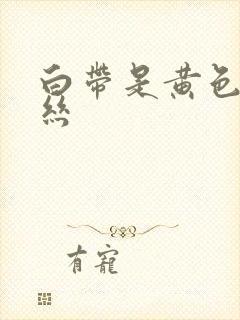 白带是黄色
丝
有宠